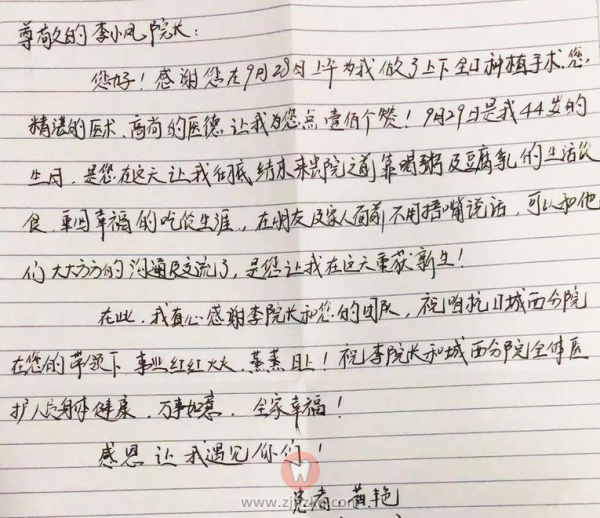 尊敬的李小凤院长:
您好!感谢您在9月28日上午为我做了上下全口种植手术.您
精湛的医术、高尚的医德让我为您点壹佰个赞!9月29日是我44岁的
生日,是您在这天让我彻底结束来贵院之前靠喝粥及豆腐乳的生活饮
食,重回幸福的吃饭生涯,在朋友及家人面前不用捂嘴说话,可以和他
们大大方方的沟通及交流了,是您让我在这天重获新生!
在此,我真心感谢李院长和您的团队,祝咱杭口城西分院
在您的带领下事业红红火火、蒸蒸日上!祝李院长和城西分院全体医
护人员身体健康、万事如意、全家幸福!
感恩让我遇见你们!
患者:黄艳